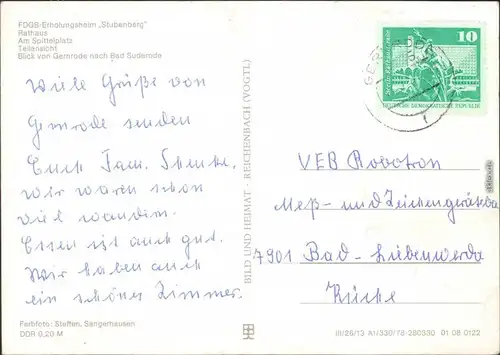 FDGB-Erholungsheim „Stubenberg"
Rathaus
Am Spittelplatz
Teilansicht
Blick von Gernrode nach Bad Suderode
Viele Grüße von
Gernrode senden
Euch Fam. Schenke,
wir waren schon
viel wandern.
Essen ist auch gut.
Wir haben auch
ein schönes Zimmer.
Farbfoto: Steffen, Sangerhausen
DDR 0,20 M
BILD UND HEIMAT · REICHENBACH (VOGTL)
10
DEUTSCHE DEMOKRATISCHE REPUBLIK
VEB Robotron
Meß- und Zeichengerätebau
7901 Bad-Liebenwerda
Küche
III/26/13 A1/330/78-280330 01 08 0122